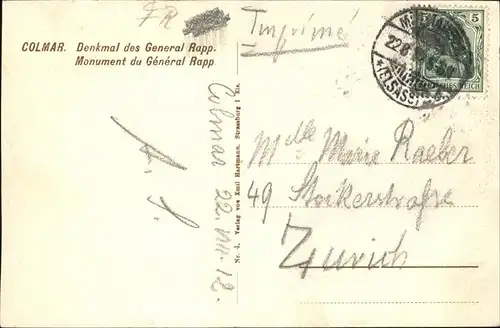 FR
Imprimé
COLMAR. Denkmal des General Rapp.
Monument du Général Rapp
5
22.8
(ELSASS)
REICH
Nr. 4. Verlag von Emil Hartmann, Strassburg i. Els.
Colmar 22. VIII. 12.
A. S.
Mdlle Marie Raeber
49 Stockerstraße
Zürich